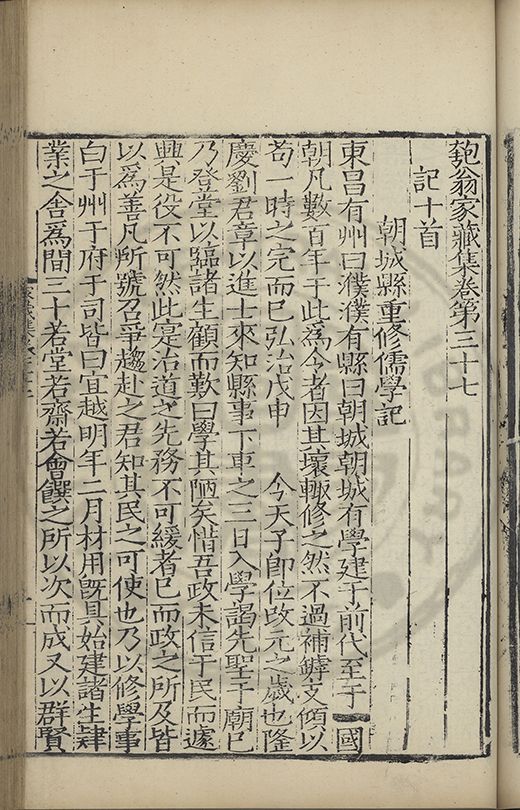 匏翁家藏集卷第三十七
記十首
朝城縣重修儒學記
東昌有州曰濮濮有縣曰朝城朝城有學建于前代至于國
朝凡數百年于此爲令者因其壞輙修之然不過補罅支傾以
苟一時之完而已弘治戊申 今天子卽位改元之歲也隆
慶劉君章以進士來知縣事下車之三日入學謁先聖于廟已
乃登堂以臨諸生顧而歎曰學其陋矣惜吾政未信于民而遽
興是役不可然此寔治道之先務不可緩者已而政之所及皆
以爲善凡所號召爭趨赴之君知其民之可使也乃以修學事
白于州于府于司皆曰宜越明年二月材用旣具始建諸生肄
業之舍爲間三十若堂若齋若會饌之所以次而成又以群賢